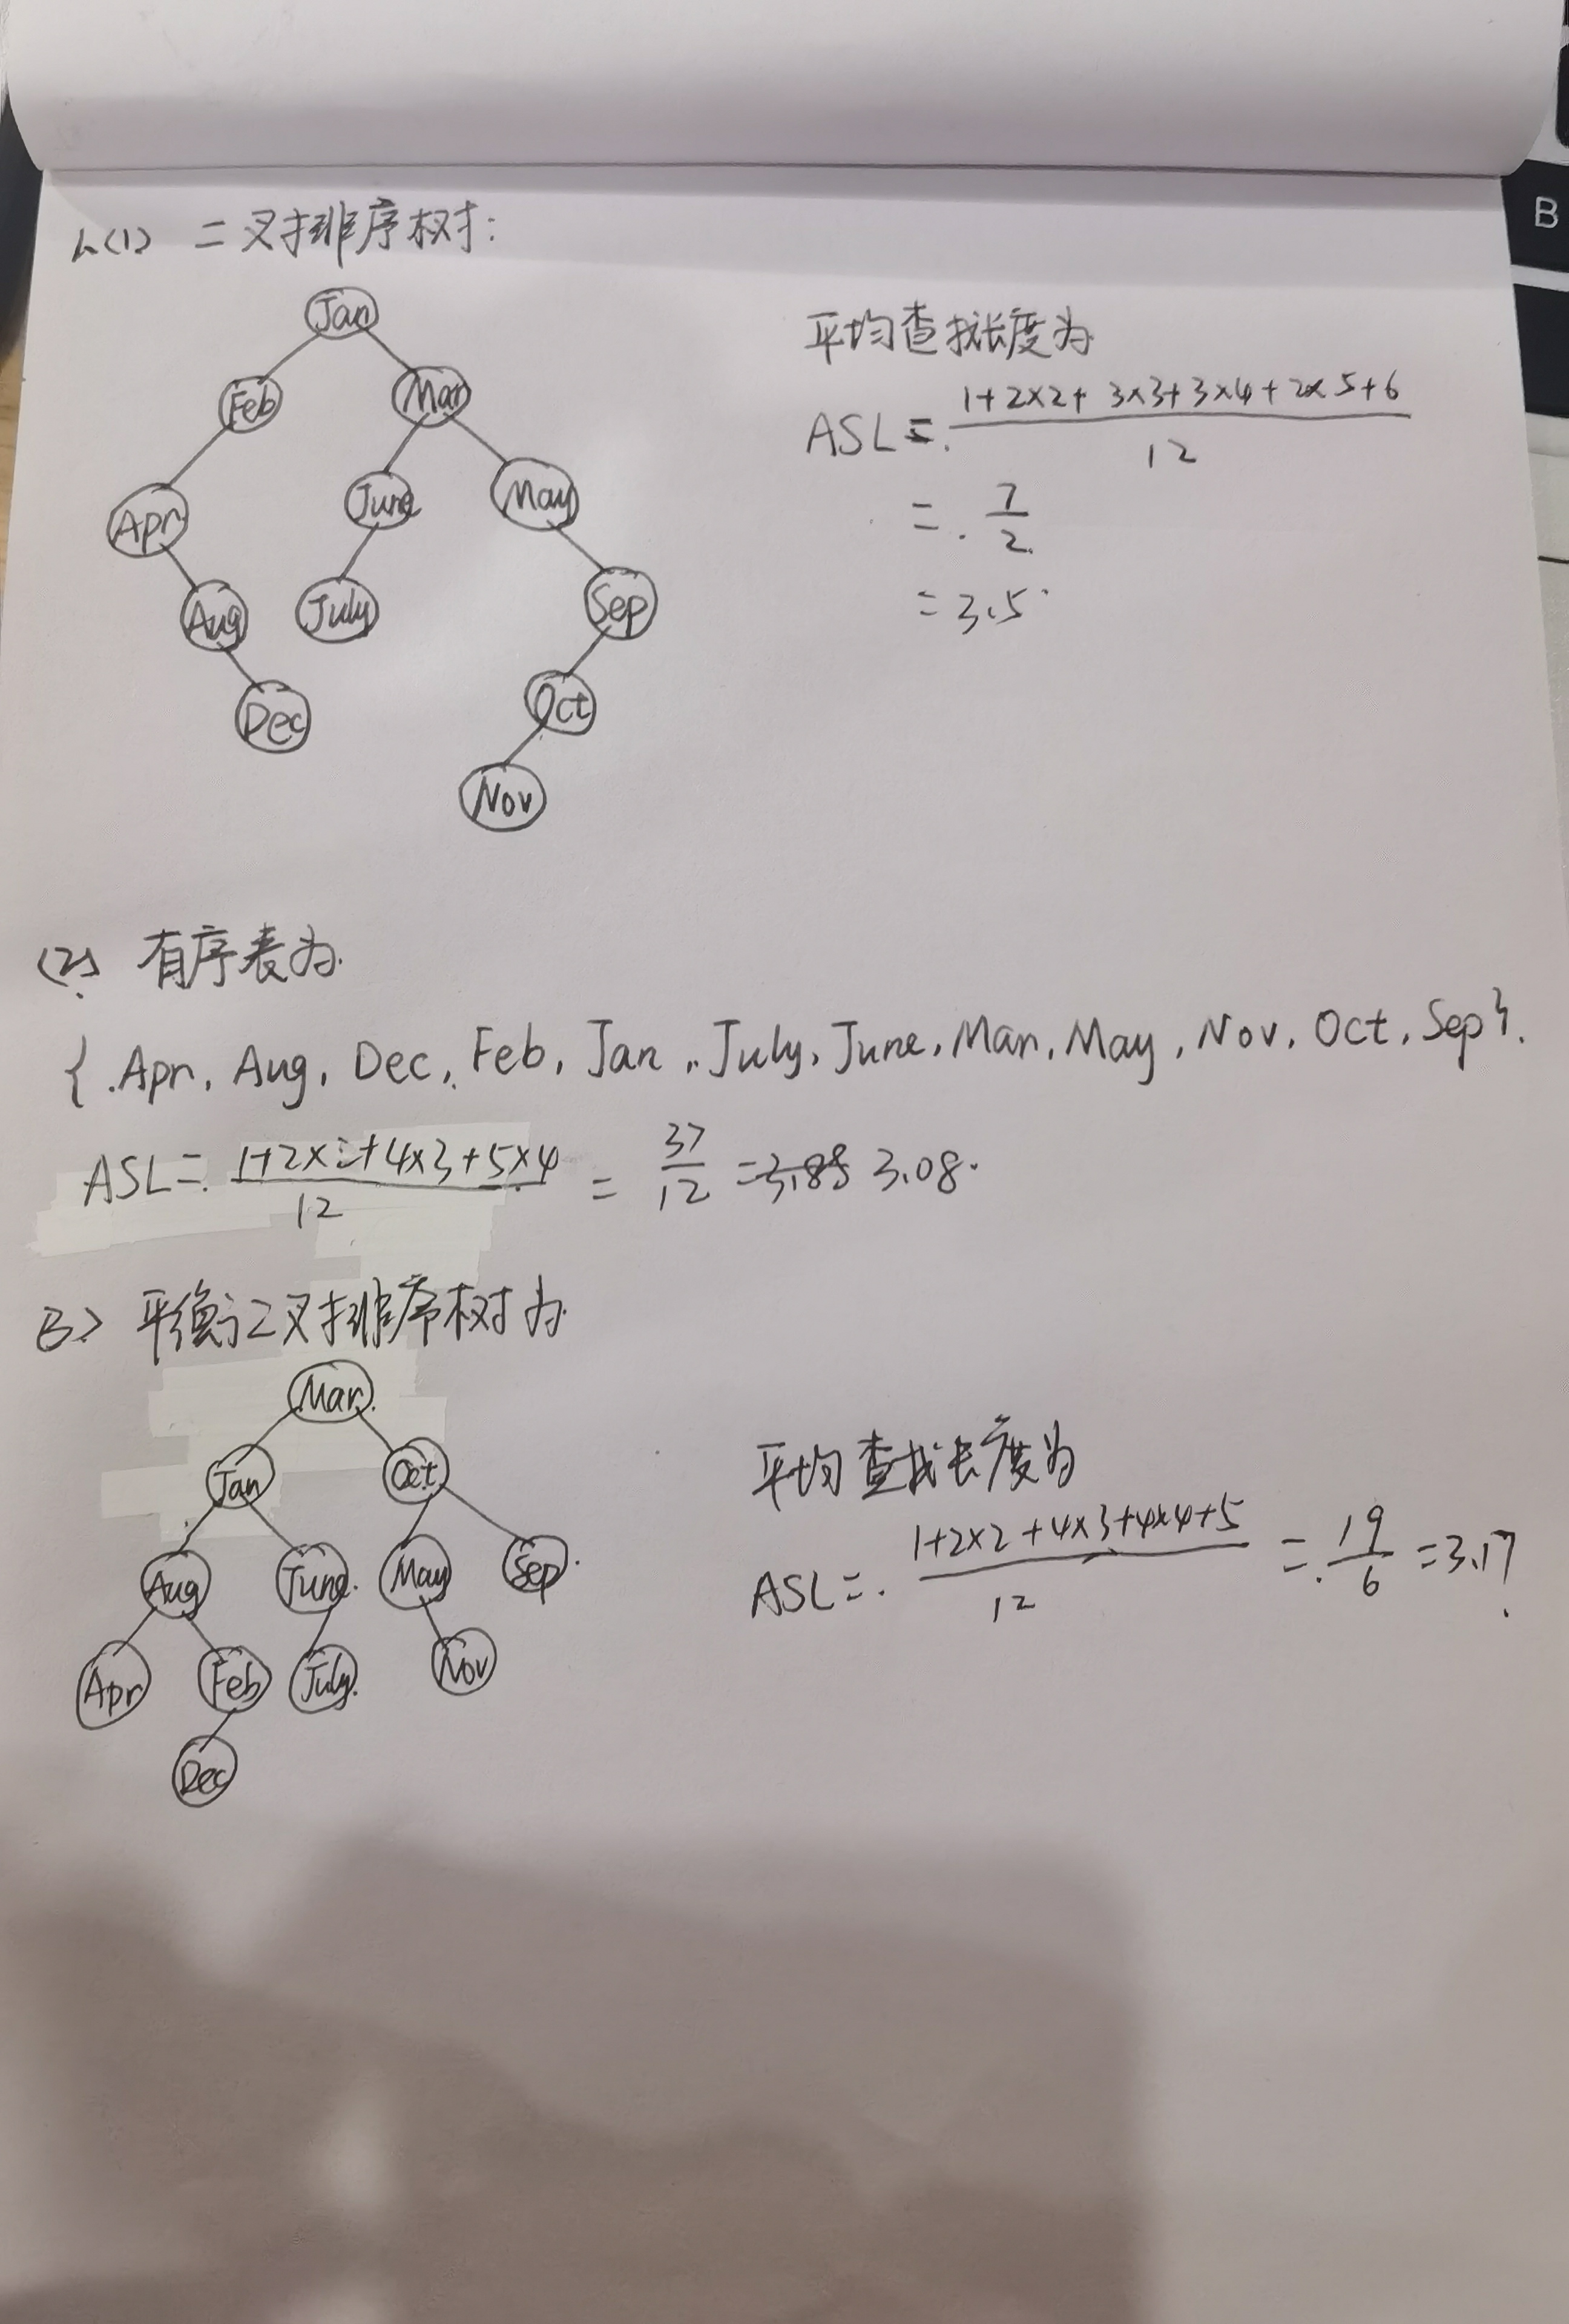 1.(1) 二叉排序树:
Jan
Feb Mar
Apr June May
Aug July Sep
Dec Oct
Nov
平均查找长度为
1+2×2+3×3+3×4+2×5+6
ASL=
12
= 7
2
=3.5
(2) 有序表为
{Apr, Aug, Dec, Feb, Jan, July, June, Mar, May, Nov, Oct, Sep}.
ASL= 1+2×2+4×3+5×4 = 37 = 3.08
12 12
(3) 平衡二叉排序树为
Mar
Jan Oct
Aug June May Sep
Apr Feb July Nov
Dec
平均查找长度为
ASL= 1+2×2+4×3+4×4+5 = 19 =3.17
12 6
B